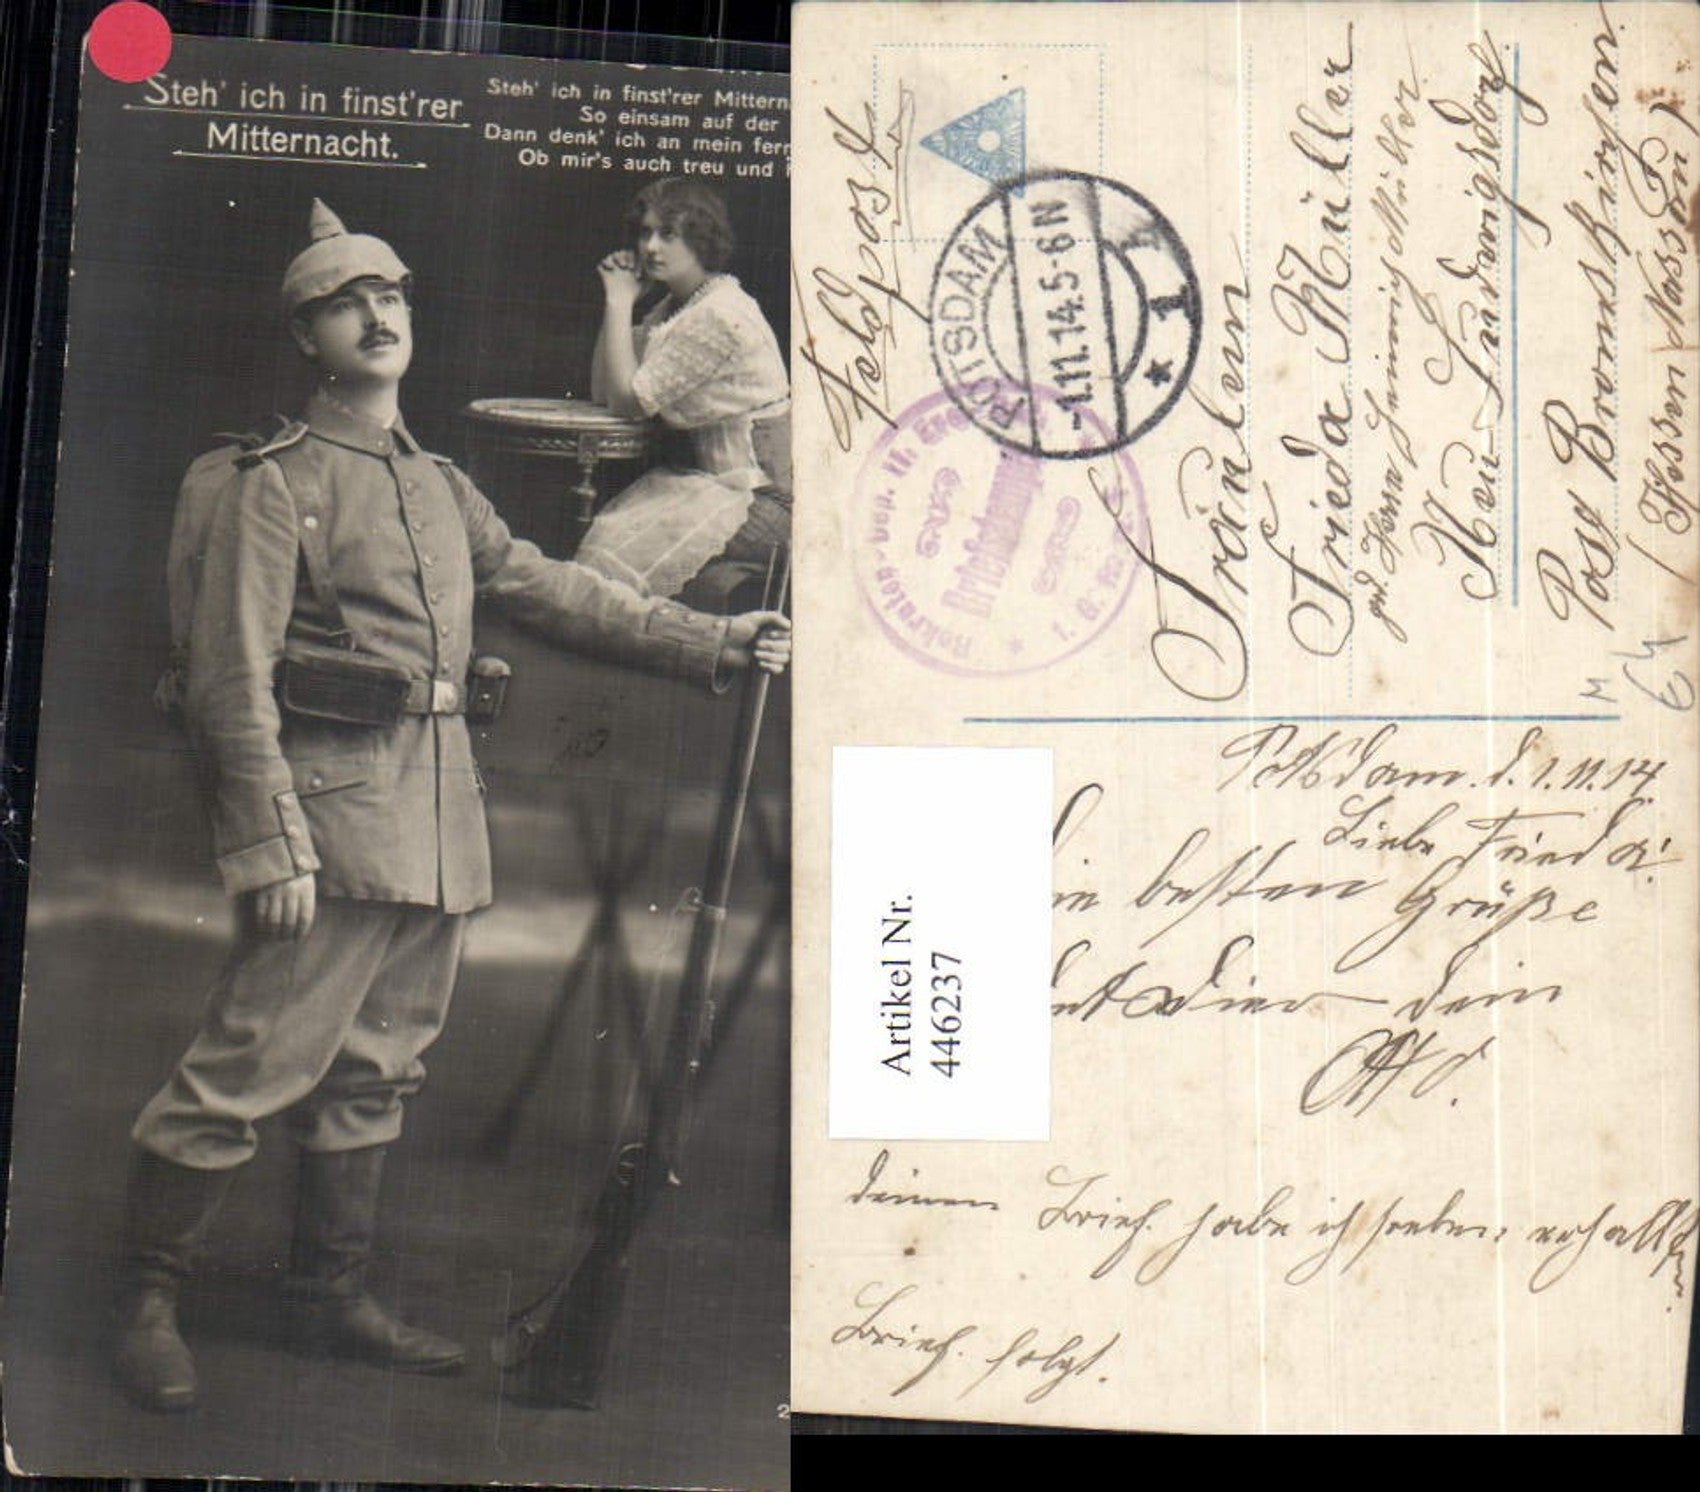 Steh' ich in finst'rer
Mitternacht.
Steh' ich in finst'rer Mittern
So einsam auf der
Dann denk' ich an mein fer
Ob mir's auch treu und
2
Feldpost
POTSDAM
-1.11.14.5-6N
* 1
Rekruten-
II.
Briefstempel
* 1. G.
Fräulein
Frieda Müller
Herrn Heinrich Müller
Neu-Ludwigsdorf
Post Bromskirchen
(Hessen Nassau)
M
Potsdam. d. 1.11.14.
Liebe Frieda!
besten Grüße
dein
Otto.
deinen Brief habe ich soeben erhalten.
Brief folgt.
Artikel Nr.
446237